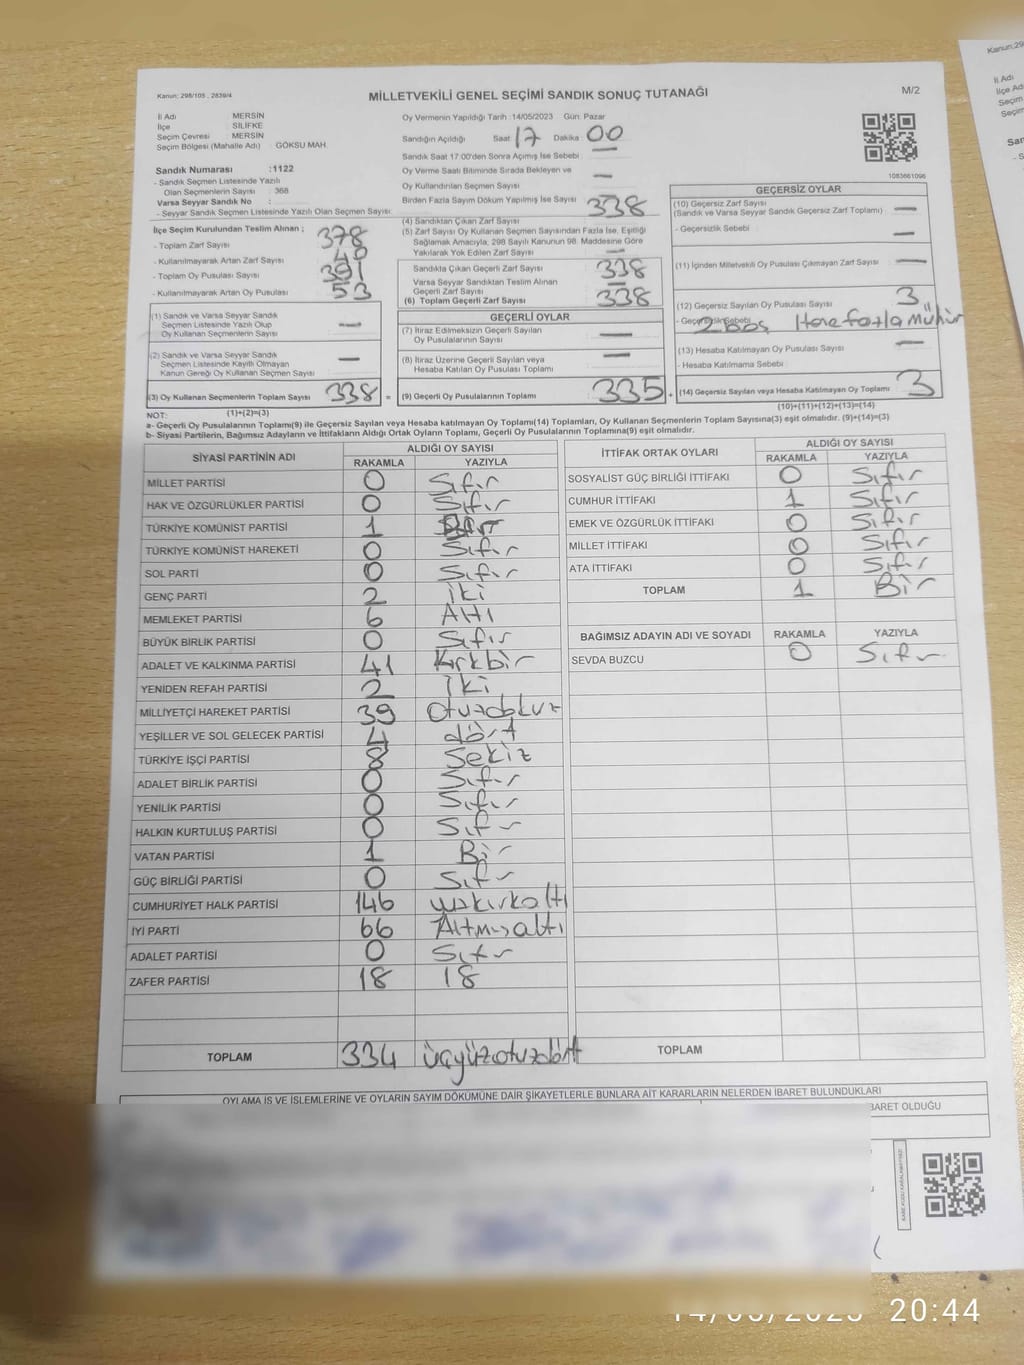 Kanun: 298/105 , 2839/4
MİLLETVEKİLİ GENEL SEÇİMİ SANDIK SONUÇ TUTANAĞI
M/2
İl Adı : MERSİN
İlçe : SİLİFKE
Seçim Çevresi : MERSİN
Seçim Bölgesi (Mahalle Adı) : GÖKSU MAH.
Sandık Numarası :1122
- Sandık Seçmen Listesinde Yazılı
Olan Seçmenlerin Sayısı : 368
Varsa Seyyar Sandık No :
- Seyyar Sandık Seçmen Listesinde Yazılı Olan Seçmen Sayısı:
İlçe Seçim Kurulundan Teslim Alınan ;
- Toplam Zarf Sayısı : 378
- Kullanılmayarak Artan Zarf Sayısı : 40
- Toplam Oy Pusulası Sayısı : 391
- Kullanılmayarak Artan Oy Pusulası : 53
(1) Sandık ve Varsa Seyyar Sandık
Seçmen Listesinde Yazılı Olup
Oy Kullanan Seçmenlerin Sayısı —
(2) Sandık ve Varsa Seyyar Sandık
Seçmen Listesinde Kayıtlı Olmayan
Kanun Gereği Oy Kullanan Seçmen Sayısı —
(3) Oy Kullanan Seçmenlerin Toplam Sayısı 338 =
Oy Vermenin Yapıldığı Tarih :14/05/2023 Gün: Pazar
Sandığın Açıldığı Saat 17 Dakika 00
Sandık Saat 17:00'den Sonra Açımış İse Sebebi —
Oy Verme Saati Bitiminde Sırada Bekleyen ve
Oy Kullandırılan Seçmen Sayısı —
Birden Fazla Sayım Döküm Yapılmış İse Sayısı
(4) Sandıktan Çıkan Zarf Sayısı 338
(5) Zarf Sayısı Oy Kullanan Seçmen Sayısından Fazla İse, Eşitliği
Sağlamak Amacıyla; 298 Sayılı Kanunun 98. Maddesine Göre
Yakılarak Yok Edilen Zarf Sayısı —
Sandıkta Çıkan Geçerli Zarf Sayısı 338
Varsa Seyyar Sandıktan Teslim Alınan
Geçerli Zarf Sayısı —
(6) Toplam Geçerli Zarf Sayısı 338
GEÇERLİ OYLAR
(7) İtiraz Edilmeksizin Geçerli Sayılan
Oy Pusulalarının Sayısı —
(8) İtiraz Üzerine Geçerli Sayılan veya
Hesaba Katılan Oy Pusulası Toplamı —
(9) Geçerli Oy Pusulalarının Toplamı 335 +
1083661096
GEÇERSİZ OYLAR
(10) Geçersiz Zarf Sayısı
(Sandık ve Varsa Seyyar Sandık Geçersiz Zarf Toplamı) —
- Geçersizlik Sebebi —
(11) İçinden Milletvekili Oy Pusulası Çıkmayan Zarf Sayısı —
(12) Geçersiz Sayılan Oy Pusulası Sayısı 3
- Geçersizlik Sebebi 2 boş 1 fazla Mühür
(13) Hesaba Katılmayan Oy Pusulası Sayısı —
- Hesaba Katılmama Sebebi
(14) Geçersiz Sayılan veya Hesaba Katılmayan Oy Toplamı 3
NOT: (1)+(2)=(3) (10)+(11)+(12)+(13)=(14)
a- Geçerli Oy Pusulalarının Toplamı(9) ile Geçersiz Sayılan veya Hesaba Katılmayan Oy Toplamı(14) Toplamları, Oy Kullanan Seçmenlerin Toplam Sayısına(3) eşit olmalıdır. (9)+(14)=(3)
b- Siyasi Partilerin, Bağımsız Adayların ve İttifakların Aldığı Ortak Oyların Toplamı, Geçerli Oy Pusulalarının Toplamına(9) eşit olmalıdır.
SİYASİ PARTİNİN ADI ALDIĞI OY SAYISI
RAKAMLA YAZIYLA
MİLLET PARTİSİ 0 Sıfır
HAK VE ÖZGÜRLÜKLER PARTİSİ 0 Sıfır
TÜRKİYE KOMÜNİST PARTİSİ 1
TÜRKİYE KOMÜNİST HAREKETİ 0 Sıfır
SOL PARTİ 0 Sıfır
GENÇ PARTİ 2 İki
MEMLEKET PARTİSİ 6 Altı
BÜYÜK BİRLİK PARTİSİ 0 Sıfır
ADALET VE KALKINMA PARTİSİ 41 Kırkbir
YENİDEN REFAH PARTİSİ 2 İki
MİLLİYETÇİ HAREKET PARTİSİ 39 otuzdokuz
YEŞİLLER VE SOL GELECEK PARTİSİ 4 dört
TÜRKİYE İŞÇİ PARTİSİ 8 Sekiz
ADALET BİRLİK PARTİSİ 0 Sıfır
YENİLİK PARTİSİ 0 Sıfır
HALKIN KURTULUŞ PARTİSİ 0 Sıfır
VATAN PARTİSİ 1 Bir
GÜÇ BİRLİĞİ PARTİSİ 0 Sıfır
CUMHURİYET HALK PARTİSİ 146 yüzkırkaltı
İYİ PARTİ 66 Altmışaltı
ADALET PARTİSİ 0 Sıfır
ZAFER PARTİSİ 18 18
TOPLAM 334 üçyüzotuzdört
İTTİFAK ORTAK OYLARI ALDIĞI OY SAYISI
RAKAMLA YAZIYLA
SOSYALİST GÜÇ BİRLİĞİ İTTİFAKI 0 Sıfır
CUMHUR İTTİFAKI 1 Sıfır
EMEK VE ÖZGÜRLÜK İTTİFAKI 0 Sıfır
MİLLET İTTİFAKI 0 Sıfır
ATA İTTİFAKI 0 Sıfır
TOPLAM 1 Bir
BAĞIMSIZ ADAYIN ADI VE SOYADI RAKAMLA YAZIYLA
SEVDA BUZCU 0 Sıfır
TOPLAM
OYLAMA İŞ VE İŞLEMLERİNE VE OYLARIN SAYIM DÖKÜMÜNE DAİR ŞİKAYETLERLE BUNLARA AİT KARARLARIN NELERDEN İBARET BULUNDUKLARI
BARET OLDUĞU
14/05/2023 20:44